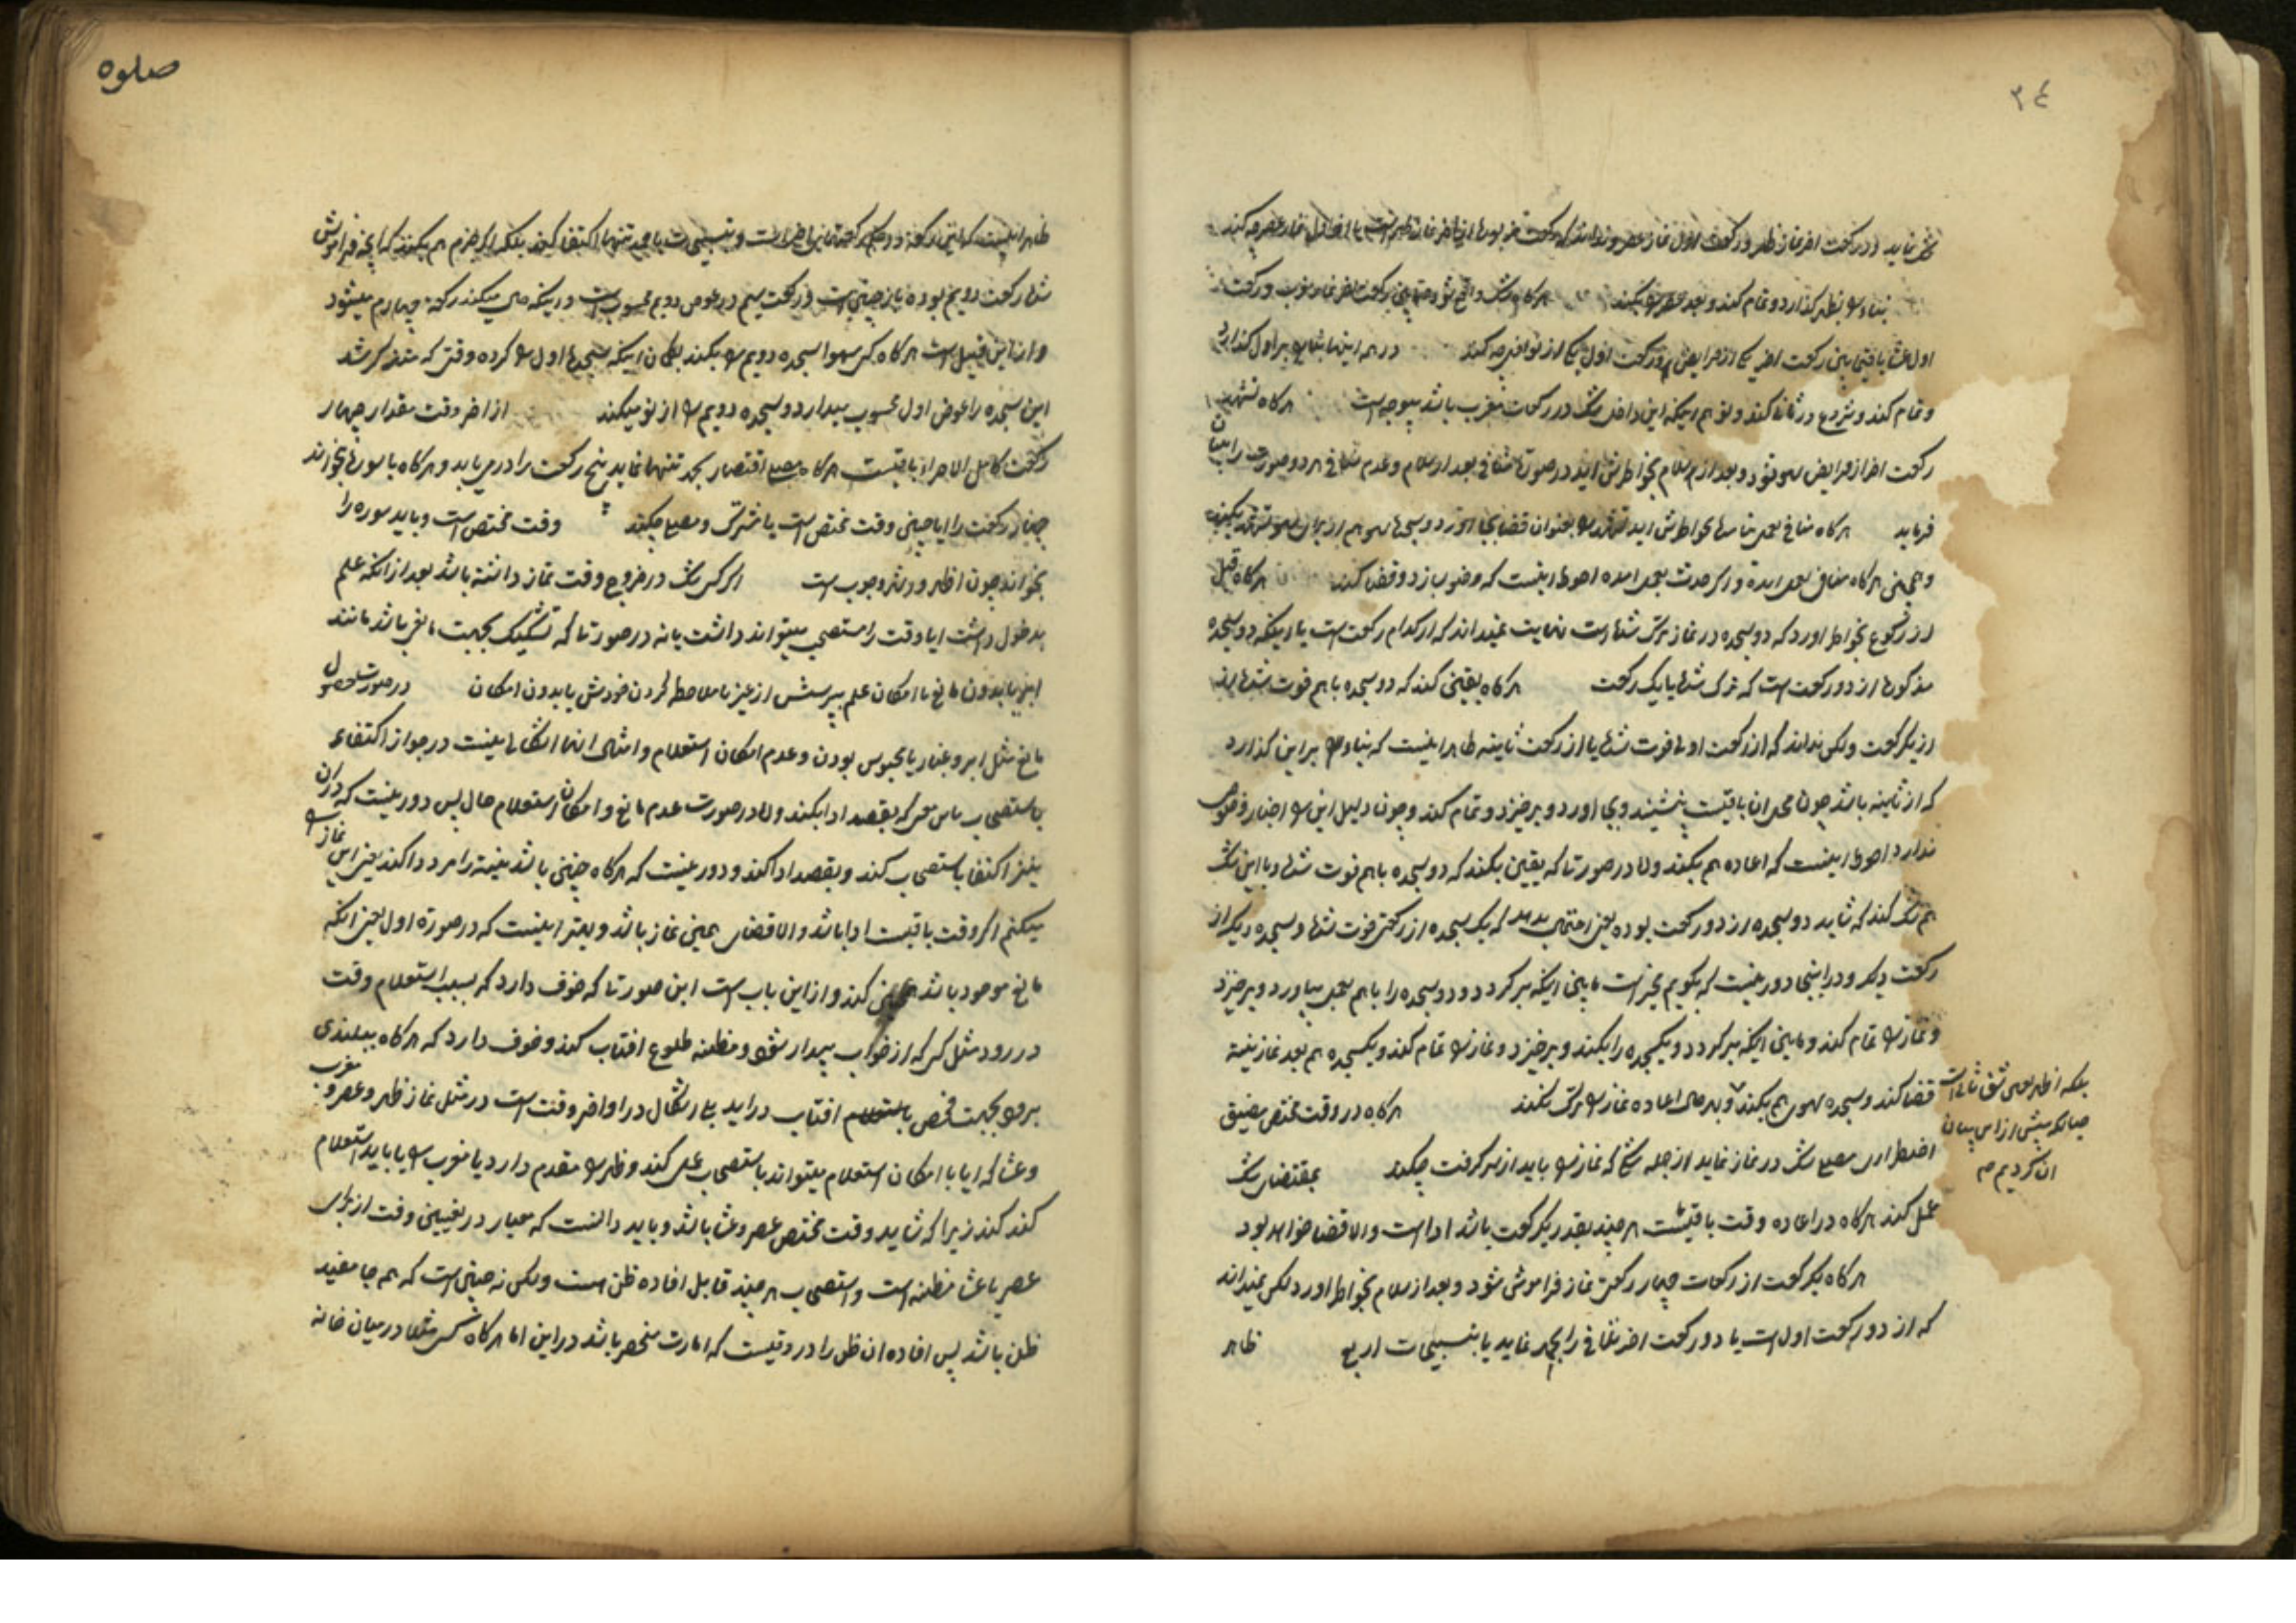 ٢٤
شک نماید در رکعت اخر نماز ظهر و رکعت اول نماز عصر و نداند که رکعت
بناء را بظهر گذارد و تمام کند و بعد عصر را بکند هرگاه شک واقع شود مابین رکعت اخر نماز مغرب و رکعت
اول عشا یا مابین رکعت اخر یکی از فرایض و رکعت اول یکی از نوافل چه کند در همه اینها بنا را بر اول گذارد
و تمام کند و شروع در ثانی کند و توهم اینکه این داخل شک در رکعات مغرب باشد بیوجه است هرگاه تشهد
رکعت اخر از فرایض سهو شود و بعد از سلام بخواطرش اید در صورت منافی بعد از سلام و عدم منافی هر دو صورت را بیان
فرماید هرگاه منافی بعمل نیامده بخواطرش اید تشهد را بعنوان قضا بجا اورد و سجده سهو هم از برای سهو تشهد بکند
و همچنین هرگاه منافی بعمل امده و اگر حدث بعمل امده احوط اینست که وضو بسازد و قضا کند هرگاه قبل
از رکوع بخواطر اورد که دو سجده در نماز ترک شده است نهایت نمیداند که از کدام رکعت است یا اینکه دو سجده
مذکوره از دو رکعت است که ترک شده یا یک رکعت هرگاه یقین کند که دو سجده با هم فوت شده
از یکرکعت ولکن نداند که از رکعت اولی فوت شده یا از رکعت ثانیه ظاهر اینست که بناء را بر این گذارد
که از ثانیه باشد چون محل ان باقیست بنشیند و بجا اورد و برخیزد و تمام کند و چون دلیل این را اخبار وضوح
ندارد احوط اینست که اعاده هم بکند و اما در صورتی که یقین بکند که دو سجده با هم فوت شده و با این شک
هم شک کند که شاید دو سجده از دو رکعت بوده یعنی احتمال بدهد که یک سجده از رکعتی فوت شده و سجده دیگر از
رکعت دیگر و در اینجا دور نیست که بگویم مخیر است مابین اینکه برگردد و دو سجده را با هم بعمل بیاورد و برخیزد
و نماز را تمام کند و مابین اینکه برگردد و یکسجده را بکند و برخیزد و نماز را تمام کند و یکسجده هم بعد نماز بنیت
قضا کند و سجده سهو هم بکند و بهر حال اعاده نماز را ترک نکند هرگاه در وقت مختص مضیق
بلکه اظهر بعمل شق ثانی است
چنانکه پیش از این بیان
ان کردیم
اضطراری مصلی شک در نماز نماید از جمله شکی که نماز را باید از سر گرفت چکند بمقتضای شک
عمل کند هرگاه در اعاده وقت باقیست هر چند بقدر یکرکعت باشد ادا است و الا قضا خواهد بود
هرگاه یکرکعت از رکعات چهار رکعتی نماز فراموش شود و بعد از سلام بخواطر اورد لکن نمیداند
که از دو رکعت اول است یا دو رکعت اخر تلافی را بحمد نماید یا بتسبیحات اربع ظاهر
صلوة
ظاهر اینست که
شده رکعت دویم بوده باز چنین است و رکعت سیم در عوض دویم محسوب است و اینکه می میکند رکعت چهارم میشود
و از این قبیل است هرگاه کسی سهوا سجده دویم را بکند بگمان اینکه سجده اول را کرده وقتی که متذکر شد
این سجده را عوض اول محسوب میدارد و سجده دویم را از نو میکند از اخر وقت مقدار چهار
رکعت کامل الاجزاء باقیست هرگاه مصلی اقتصار بحمد تنها نماید پنج رکعت را در می یابد و هرگاه با سوره بخواند
چهار رکعت را ایا چنین وقت مختص است یا مشترک و مصلی چکند وقت مختص است و باید سوره را
بخواند چون اظهر در سوره وجوب است اگر کسی شک در خروج وقت نماز داشته باشد بعد از انکه علم
بدخول داشت ایا وقت را مستصحب میتواند داشت یا نه در صورتی که تشکیک بجهت مانعی باشد مانند
ابر یا بدون مانع با امکان علم بپرسش از غیر یا ملاحظه کردن خودش یا بدون امکان در صورت حصول
مانع مثل ابر و غبار یا محبوس بودن و عدم امکان استعلام و امثال انها اشکالی نیست در جواز اکتفاء
باستصحاب پس هر که بقصد ادا بکند و اما در صورت عدم مانع و امکان استعلام حال پس دور نیست که در ان
نیز اکتفا باستصحاب کند و بقصد ادا کند و دور نیست که هرگاه چنین باشد نیت را مردد کند یعنی این نماز را
میکنم اگر وقت باقیست ادا باشد و الا قضای همین نماز باشد و بهتر اینست که در صورة اول یعنی انکه
مانع موجود باشد همچنین کند و از این باب است این صورتی که خوف دارد که بسبب استعلام وقت
در رود مثل کسی که از خواب بیدار شود و مظنه طلوع افتاب کند و خوف دارد که هرگاه ببلندی
برود بجهت فحص یا استعلام افتاب در اید بلا اشکال در اواخر وقت است در مثل نماز ظهر و عصر و مغرب
و عشا که ایا با امکان استعلام میتواند باستصحاب عمل کند و ظهر را مقدم دارد یا مغرب را یا باید استعلام
کند کند زیرا که شاید وقت مختص عصر و عشا باشد و باید دانست که معیار در تعیین وقت از برای
عصر یا عشا مظنه است و استصحاب هر چند قابل افاده ظن است ولکن نه چنین است که همه جا مفید
ظن باشد پس افاده ان ظن را در وقتیست که امارت منحصر باشد در این اما هرگاه کسی مثلا در میان خانه